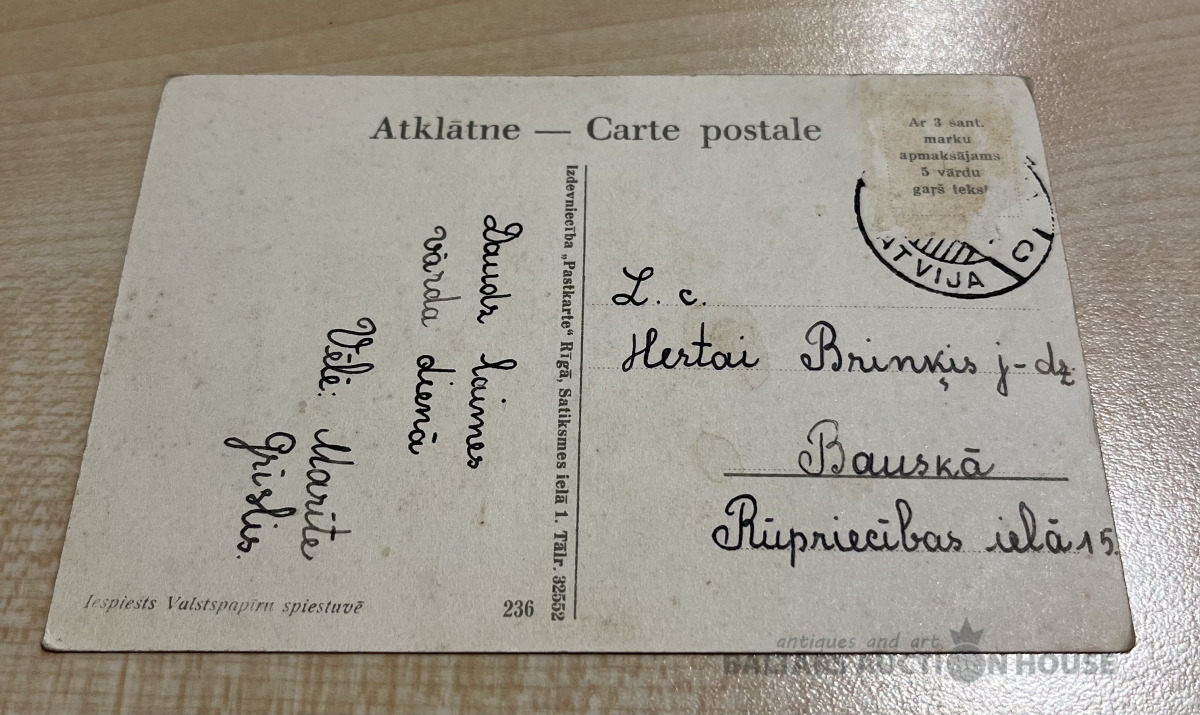 Atklātne — Carte postale
Ar 3 sant.
marku
apmaksājams
5 vārdu
gaŗš tekst
LATVIJA
C
Daudz laimes
vārda dienā
Vēlē: Marite
Grislis.
Izdevniecība „Pastkarte“ Rīgā, Satiksmes ielā 1. Tālr. 32552
L. c.
Hertai Brinķis j-dz.
Bauskā
Rūpriecības ielā 15.
Iespiests Valstspapīru spiestuvē
236
antiques and art
BALTARS AUCTION HOUSE